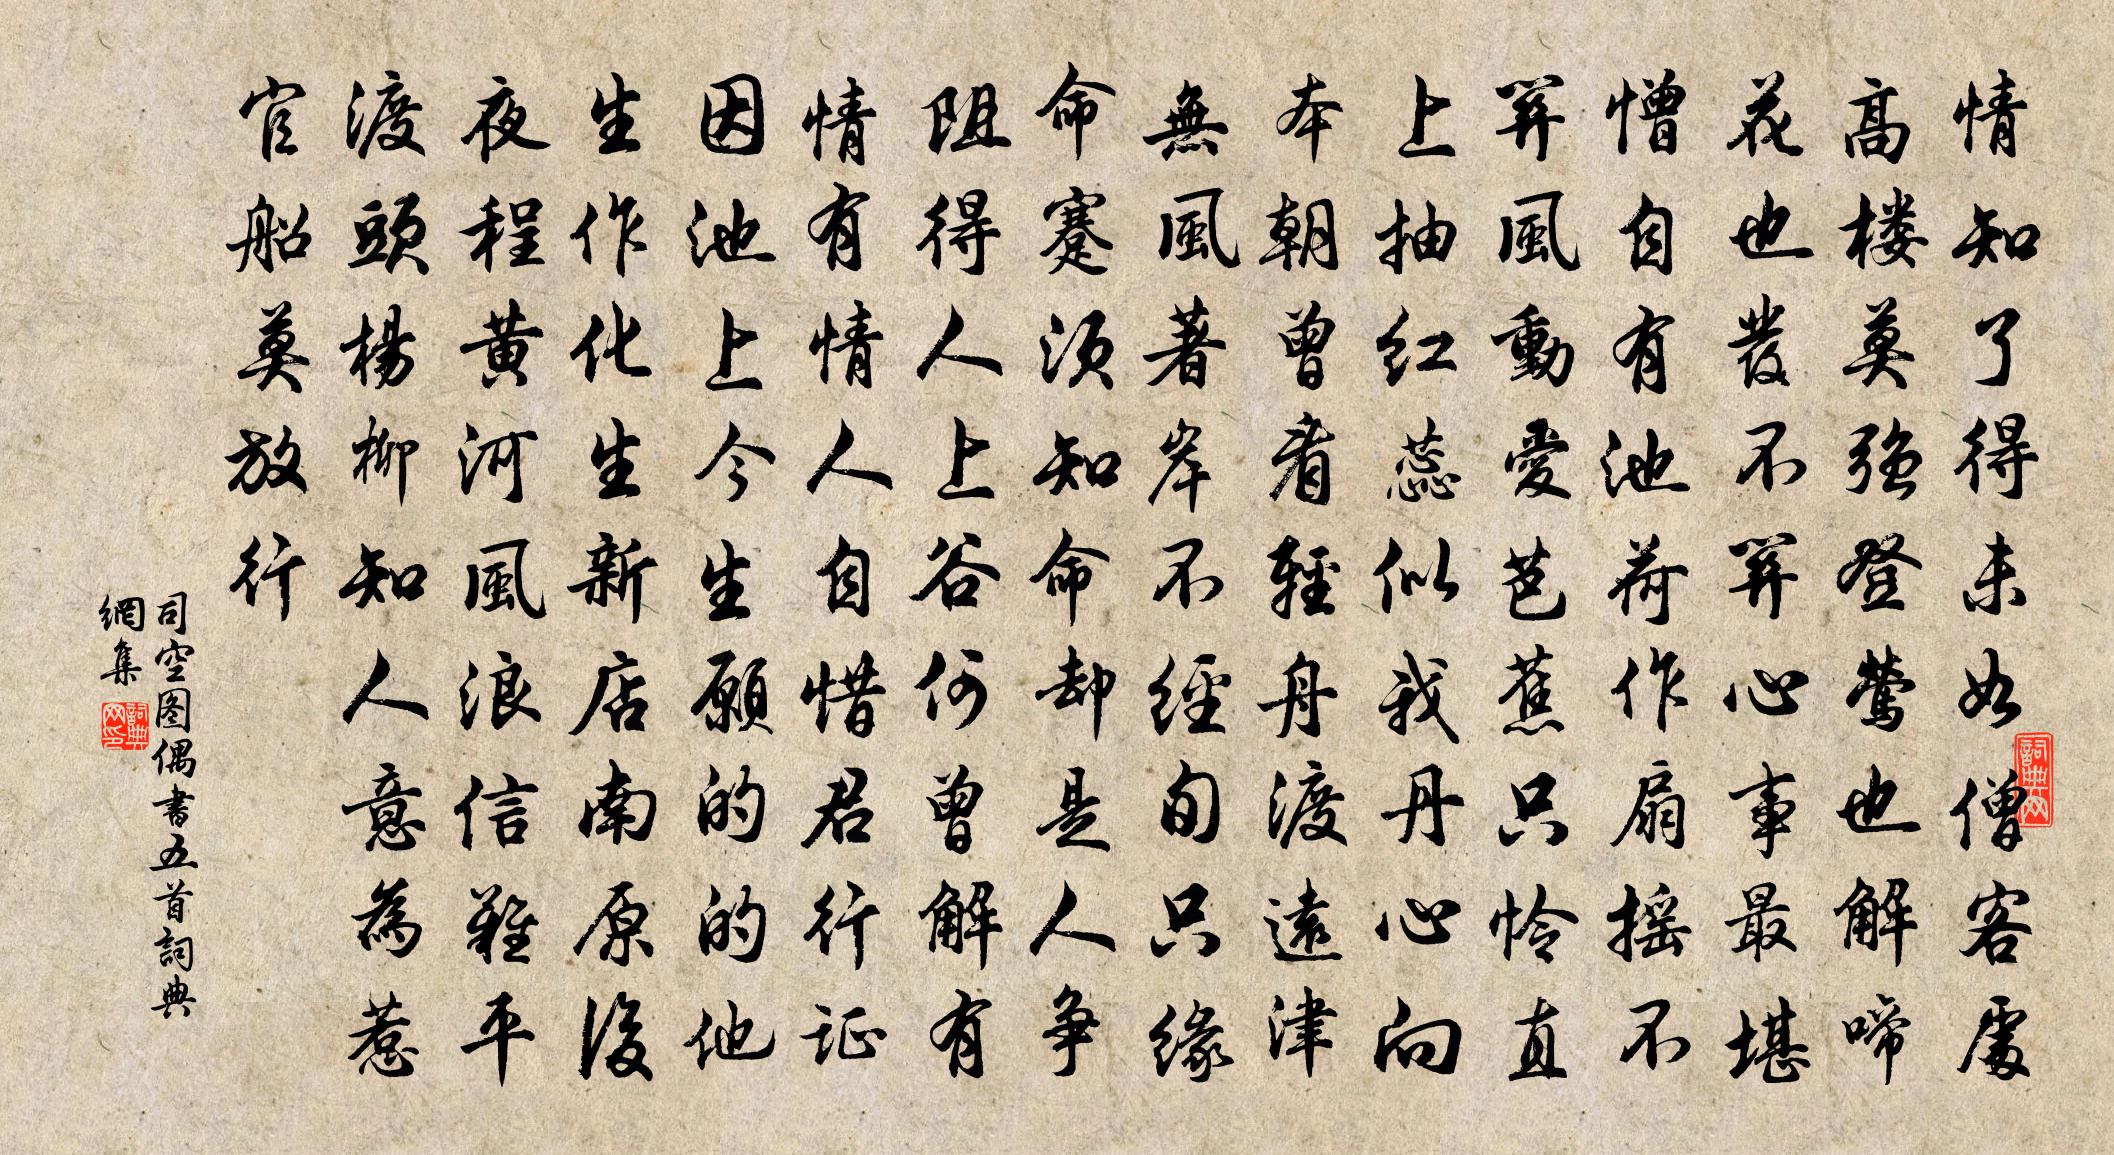 情知了得未如僧客處
高楼莫强登莺也解啼
花也發不関心事最堪
憎自有池荷作扇摇不
関風動爱芭蕉只怜直
上抽红蕊似我丹心向
本朝曾看輕舟渡遠津
無風著岸不經旬只缘
命蹇须知命却是人争
阻得人上谷何曾解有
情有情人自惜君行证
因池上今生願的的他
生作化生新店南原後
夜程黄河風浪信難平
渡頭楊柳知人意為惹
官船莫放行
司空图偶書五首詞典
網集
詞典网
詞典网印